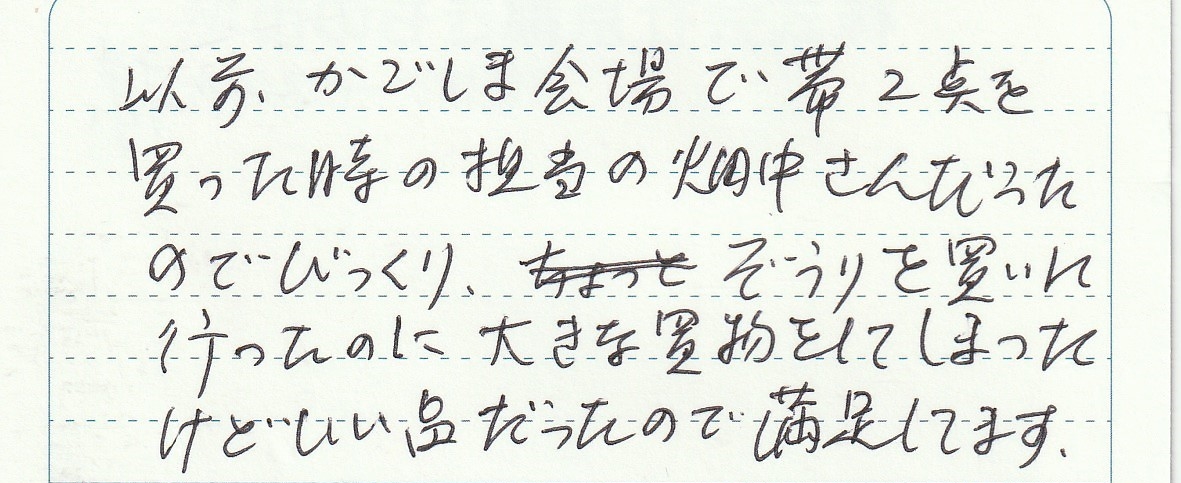 以前、かごしま会場で帯2点を
買った時の担当の畑中さんだった
のでびっくり、ちょっと ぞうりを買いに
行ったのに大きな買物をしてしまった
けどいい品だったので満足してます。